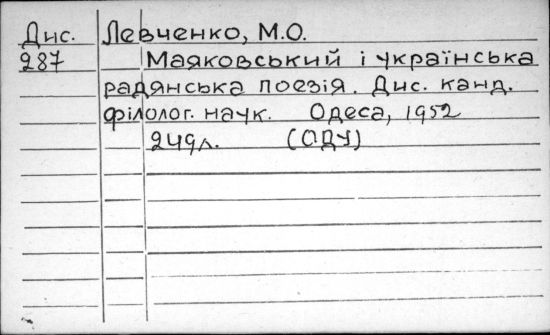 Дис. Левченко, М.О.
287 Маяковський і українська
радянська поезія. Дис. канд.
філолог. наук. Одеса, 1952
249л. (ОДУ)